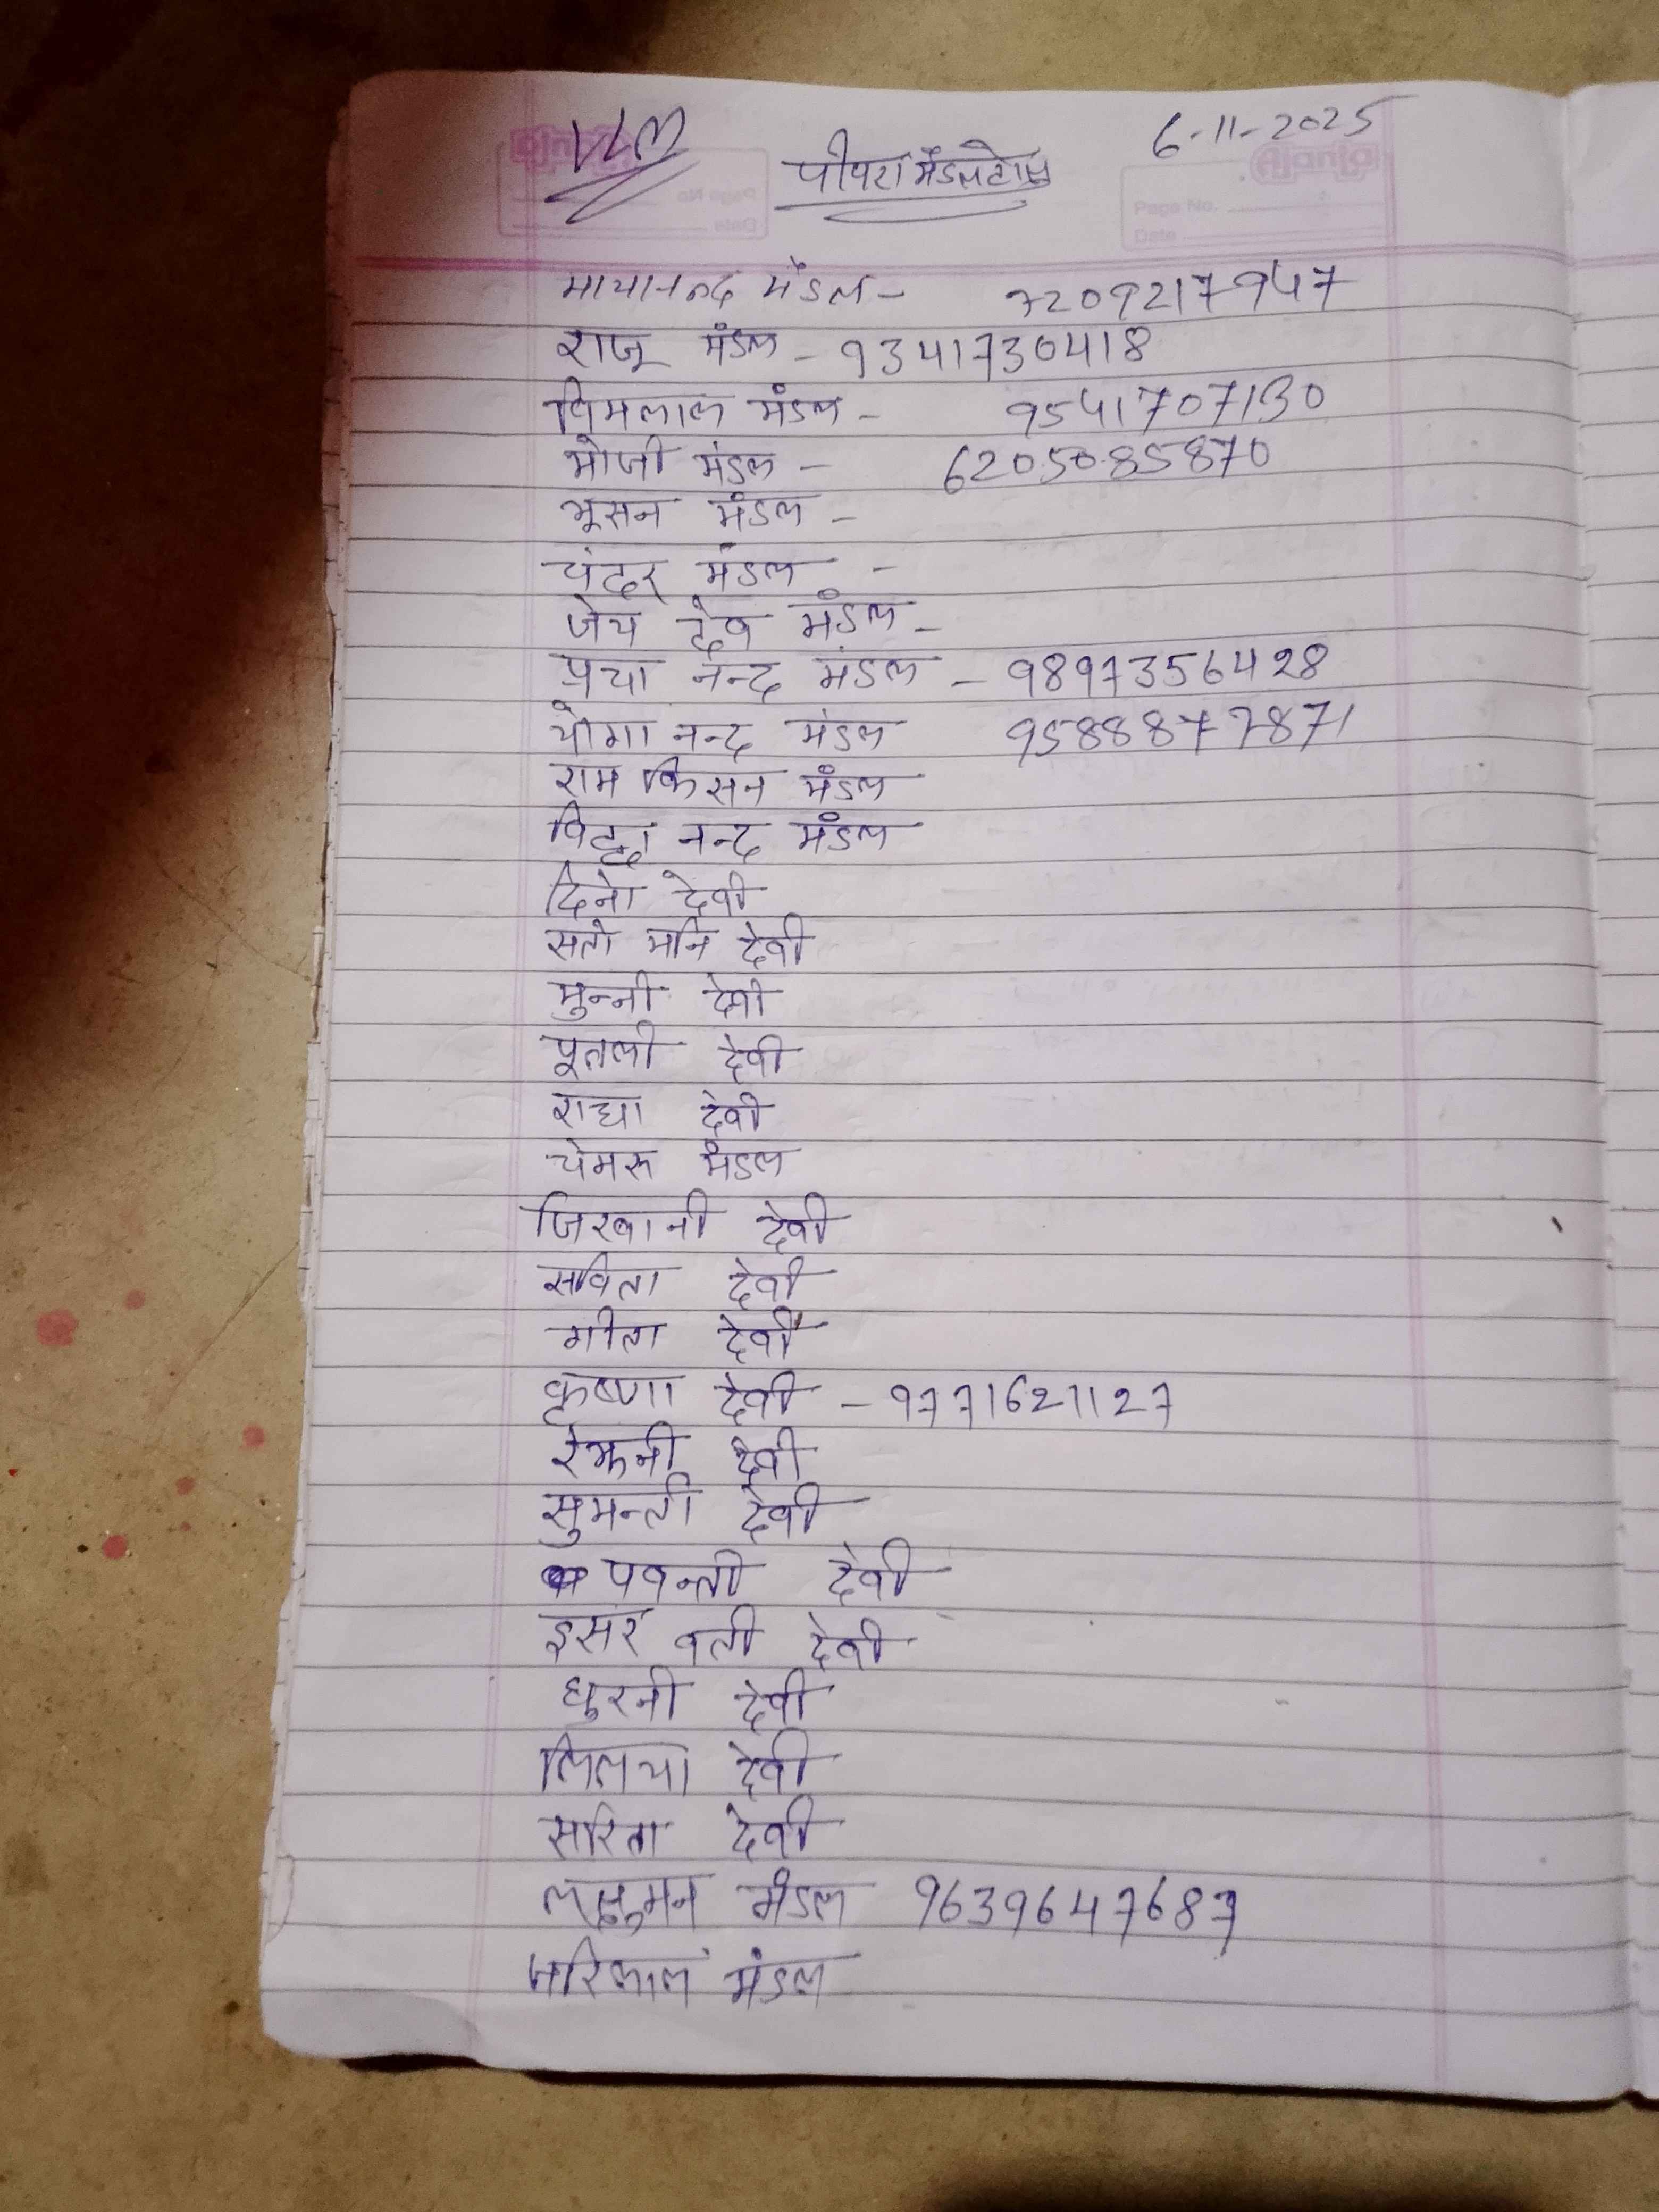 VLM
6-11-2025
पीपरा मंडल टोल
मायानन्द मंडल - 7209217947
राजू मंडल - 9341730418
विमलाल मंडल - 9541707130
भोजी मंडल - 6205085870
भूसन मंडल -
चंदर मंडल -
जेय देव मंडल -
प्रचा नन्द मंडल - 9897356428
योगा नन्द मंडल 9588877871
राम किसन मंडल
विद्या नन्द मंडल
दिनो देवी
सतो मनि देवी
मुन्नी देवी
पूतली देवी
राधा देवी
चेमरु मंडल
जिरवानी देवी
सविता देवी
गीता देवी
कृष्णा देवी - 9771621127
रेझनी देवी
सुमन्ती देवी
पवन्ती देवी
इसर वती देवी
घुरनी देवी
ललिया देवी
सरिता देवी
लछुमन मंडल 9639647687
हरिलाल मंडल